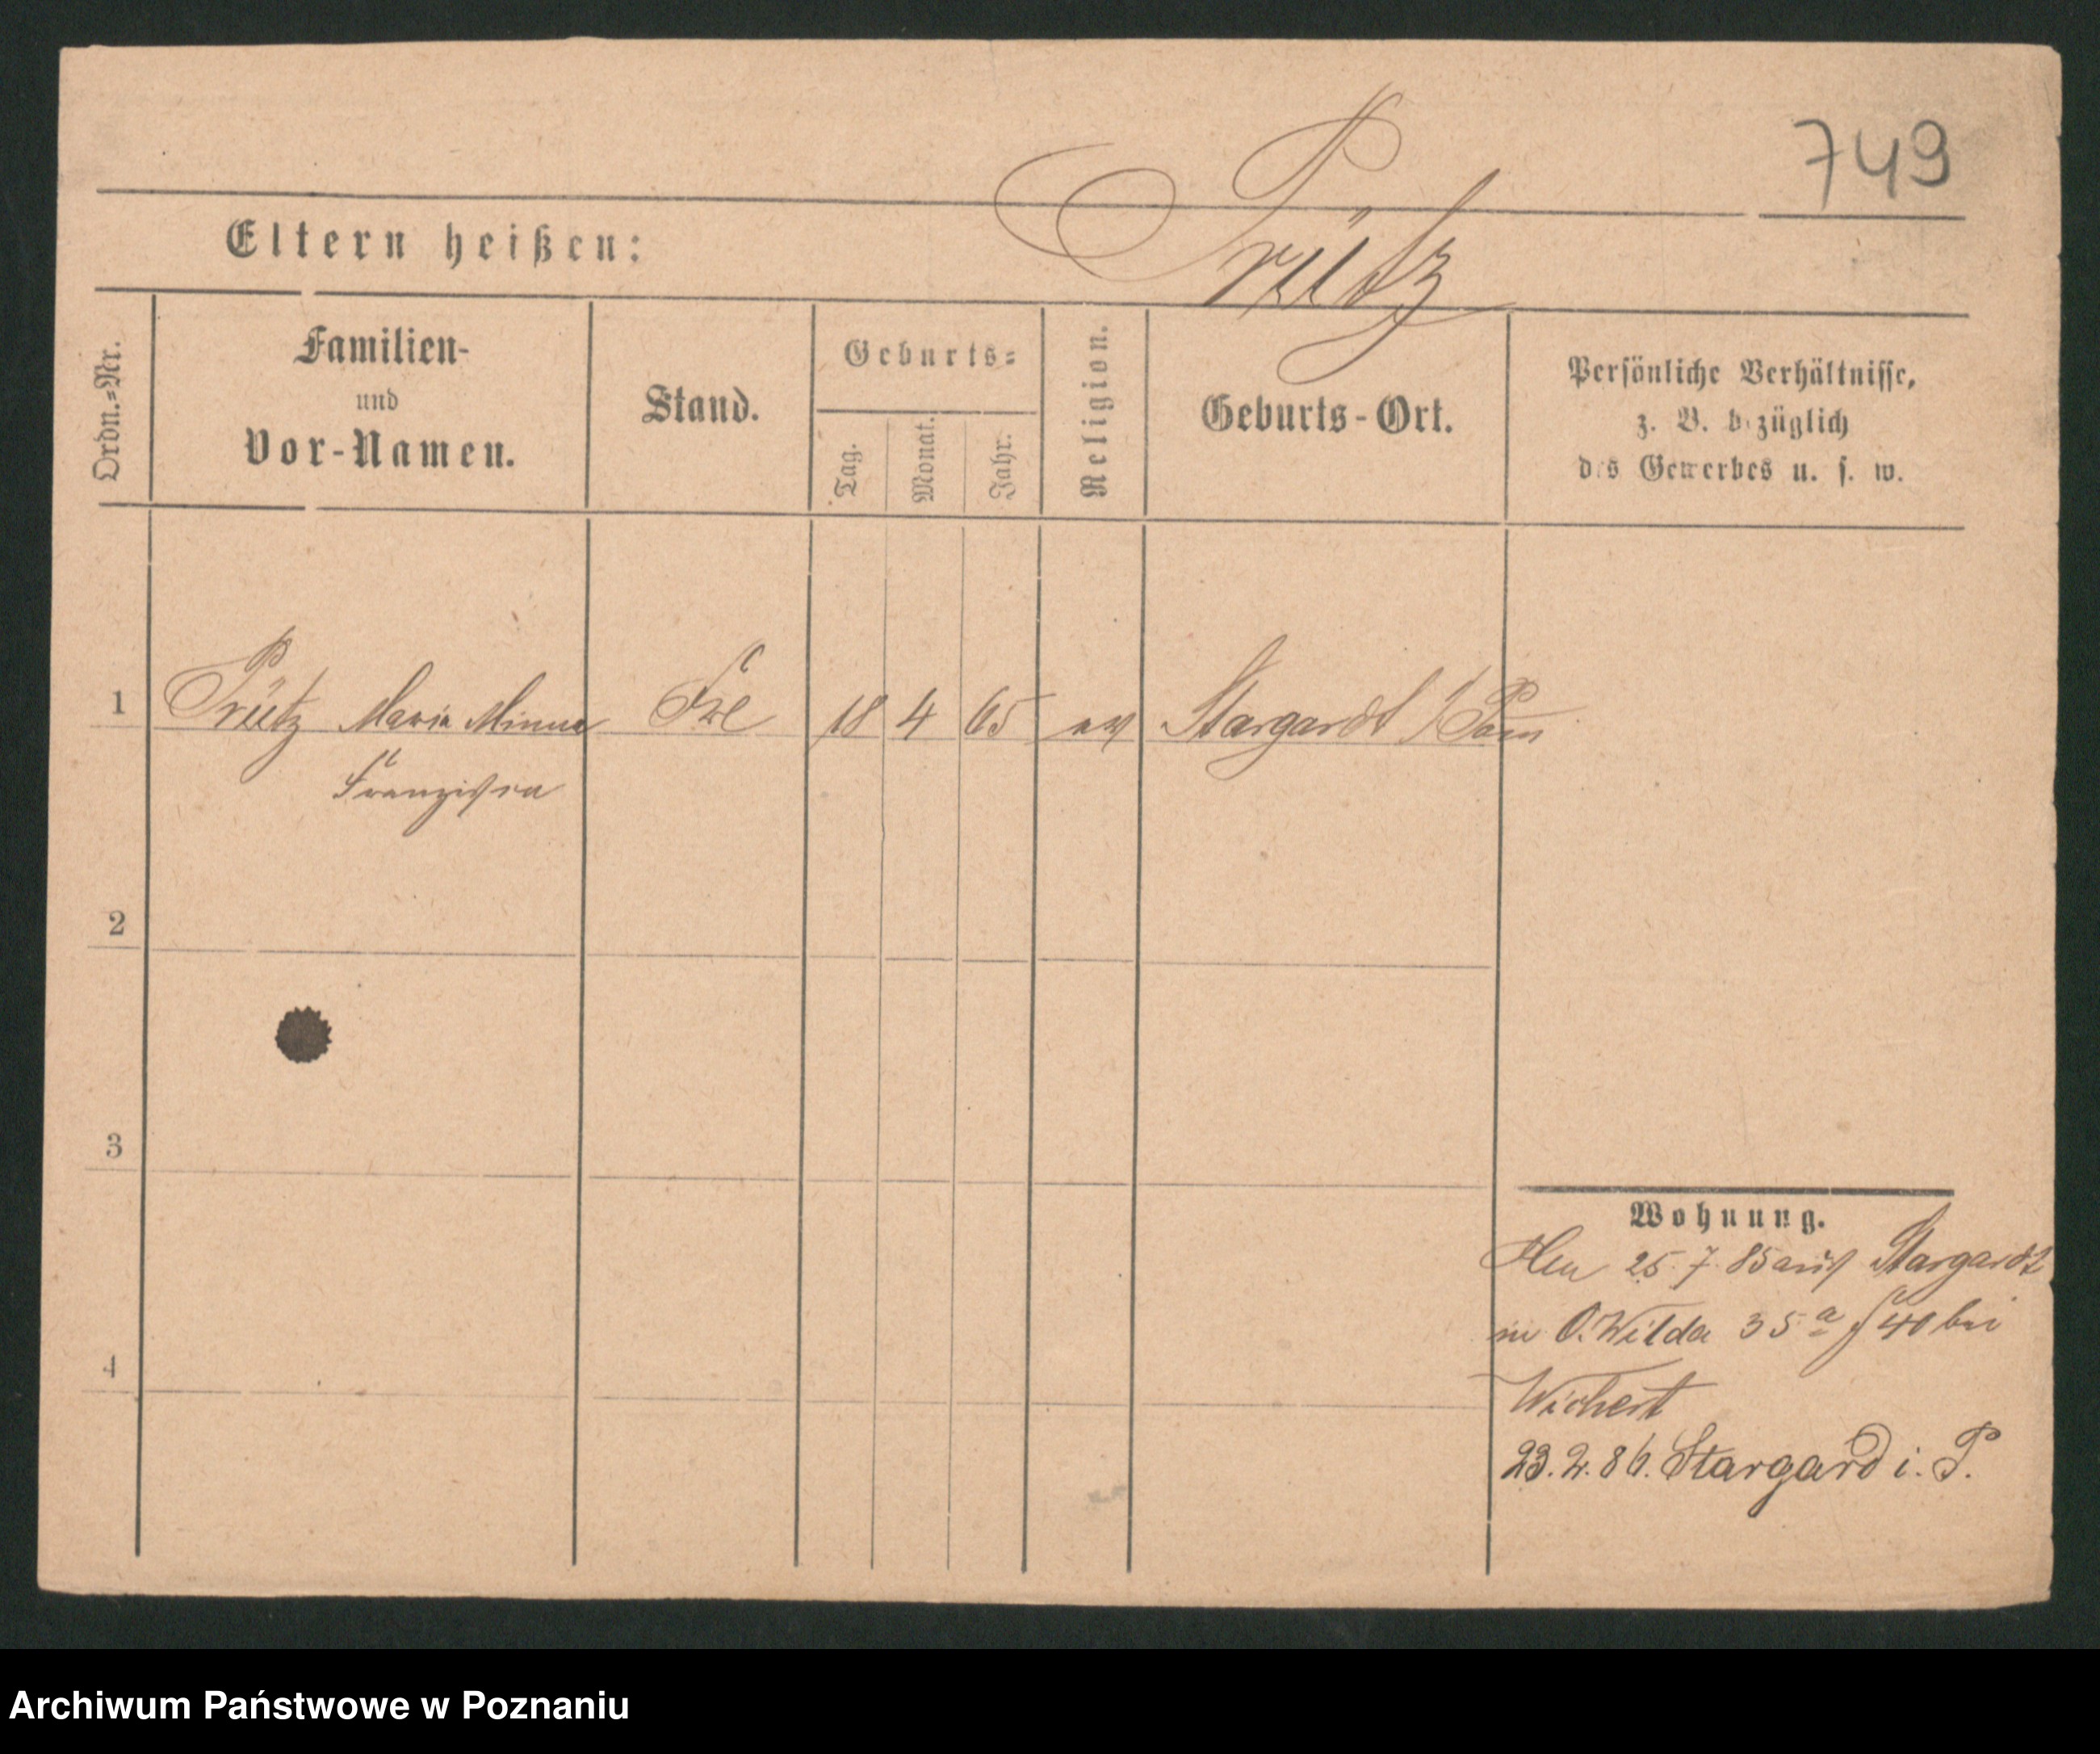 749
Prütz
Eltern heißen:
Ordn.=Nr.
Familien-
und
Vor-Namen.
Stand.
Geburts=
Tag.
Monat.
Jahr.
Religion.
Geburts-Ort.
Persönliche Verhältnisse,
z. B. bezüglich
des Gewerbes u. s. w.
1 Prütz Maria Minna Frl 18 4 65 ev Stargardt i/Pom
Franziska
2
3
4
Wohnung.
25. 7. 85 aus Stargardt
in O. Wilda 35a 40 bei
Wichert
23. 2. 86. Stargard i. P.
Archiwum Państwowe w Poznaniu